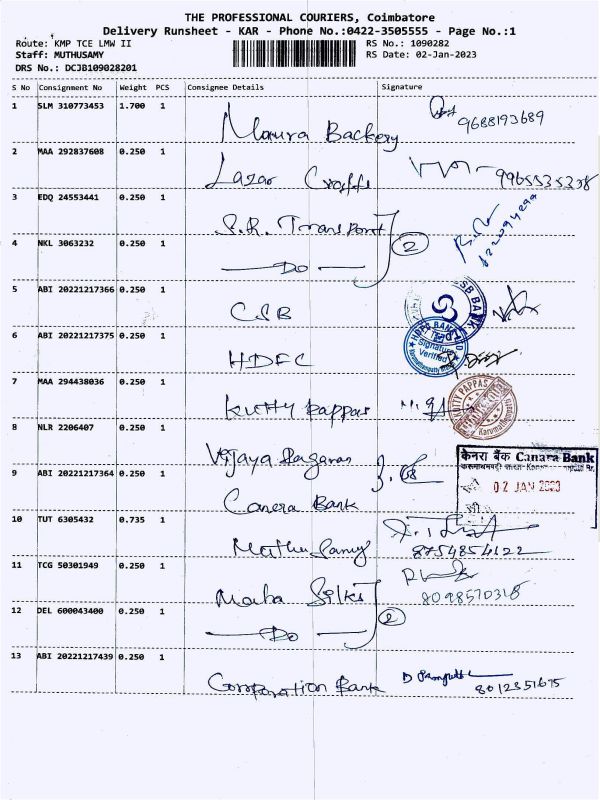 THE PROFESSIONAL COURIERS, Coimbatore
Delivery Runsheet - KAR - Phone No.:0422-3505555 - Page No.:1
Route: KMP TCE LMW II
RS No.: 1090282
Staff: MUTHUSAMY
RS Date: 02-Jan-2023
DRS No.: DCJB109028201
S No Consignment No Weight PCS Consignee Details Signature
1 SLM 310773453 1.700 1
9688193689
Backery
2 MAA 292837608 0.250 1
Lazar Crafts
9965535338
3 EDQ 24553441 0.250 1
S.R. Transport
4 NKL 3063232 0.250 1
2
Do
5 ABI 20221217366 0.250 1
CSB
CSB BANK LTD
6 ABI 20221217375 0.250 1
HDFC
HDFC BANK LTD
Signature
Verified
7 MAA 294438036 0.250 1
Kutty Pappas
KUTTY PAPPAS
8 NLR 2206407 0.250 1
Vijaya
9 ABI 20221217364 0.250 1
Canera Bank
केनरा बैंक Canara Bank
02 JAN 2023
10 TUT 6305432 0.735 1
Muthu Samy
8754854122
11 TCG 50301949 0.250 1
Maha Silks
8098570318
12 DEL 600043400 0.250 1
Do
2
13 ABI 20221217439 0.250 1
Corporation Bank
8012351675